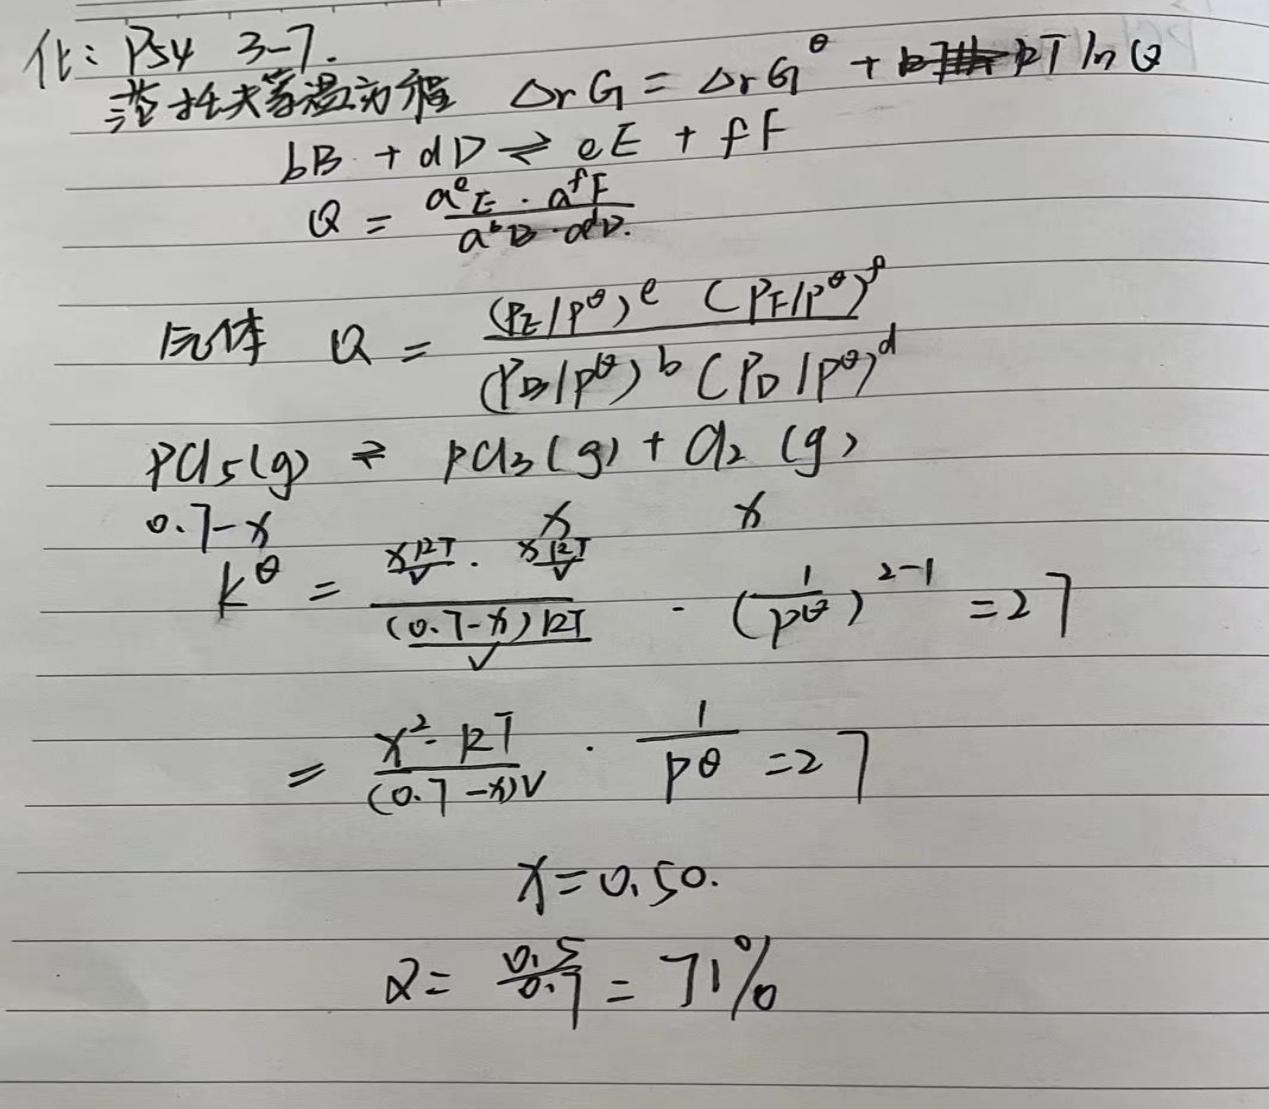 化: P54 3-7.
范托夫等温方程 ΔrG = ΔrG^θ + RT ln Q
bB + dD ⇌ eE + fF
Q = (a^e_E · a^f_F) / (a^b_B · a^d_D).
气体 Q = ((P_E/P^θ)^e (P_F/P^θ)^f) / ((P_B/P^θ)^b (P_D/P^θ)^d)
PCl5(g) ⇌ PCl3(g) + Cl2 (g)
0.7-x x x
K^θ = (xRT/V · xRT/V) / ((0.7-x)RT/V) · (1/P^θ)^(2-1) = 27
= (x² · RT) / ((0.7-x)V) · 1/P^θ = 27
x = 0.50.
α = 0.5/0.7 = 71%